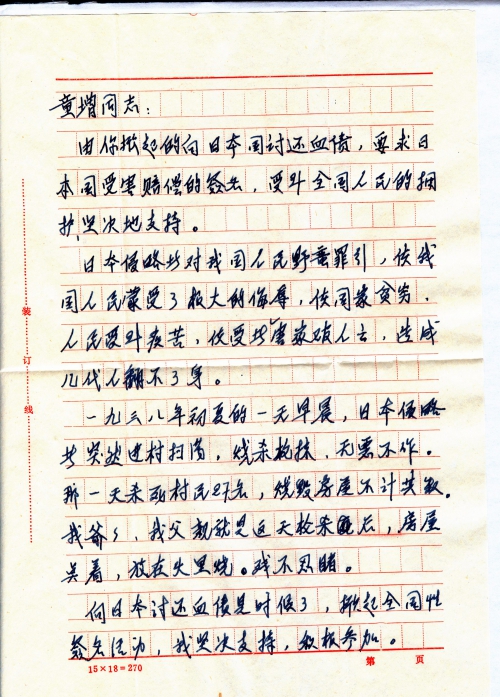 童增同志：
由你掀起的向日本国讨还血债，要求日
本国受害赔偿的签名，受到全国人民的拥
护，坚决地支持。
日本侵略者对我国人民野蛮罪行，使我
国人民蒙受了极大的侮辱，使国家贫穷，
人民受到疾苦，使受害者家破人亡，造成
几代人翻不了身。
一九三八年初夏的一天早晨，日本侵略
者突然进村扫荡，烧杀抢掠，无恶不作。
那一天杀死村民27名，烧毁房屋不计其数。
我爷爷、我父亲就是这天被杀死后，房屋
着，放在火里烧。我不忍睹。
向日本讨还血债是时候了，掀起全国性
签名活动，我坚决支持，积极参加。
装订线
15×18=270
第 页